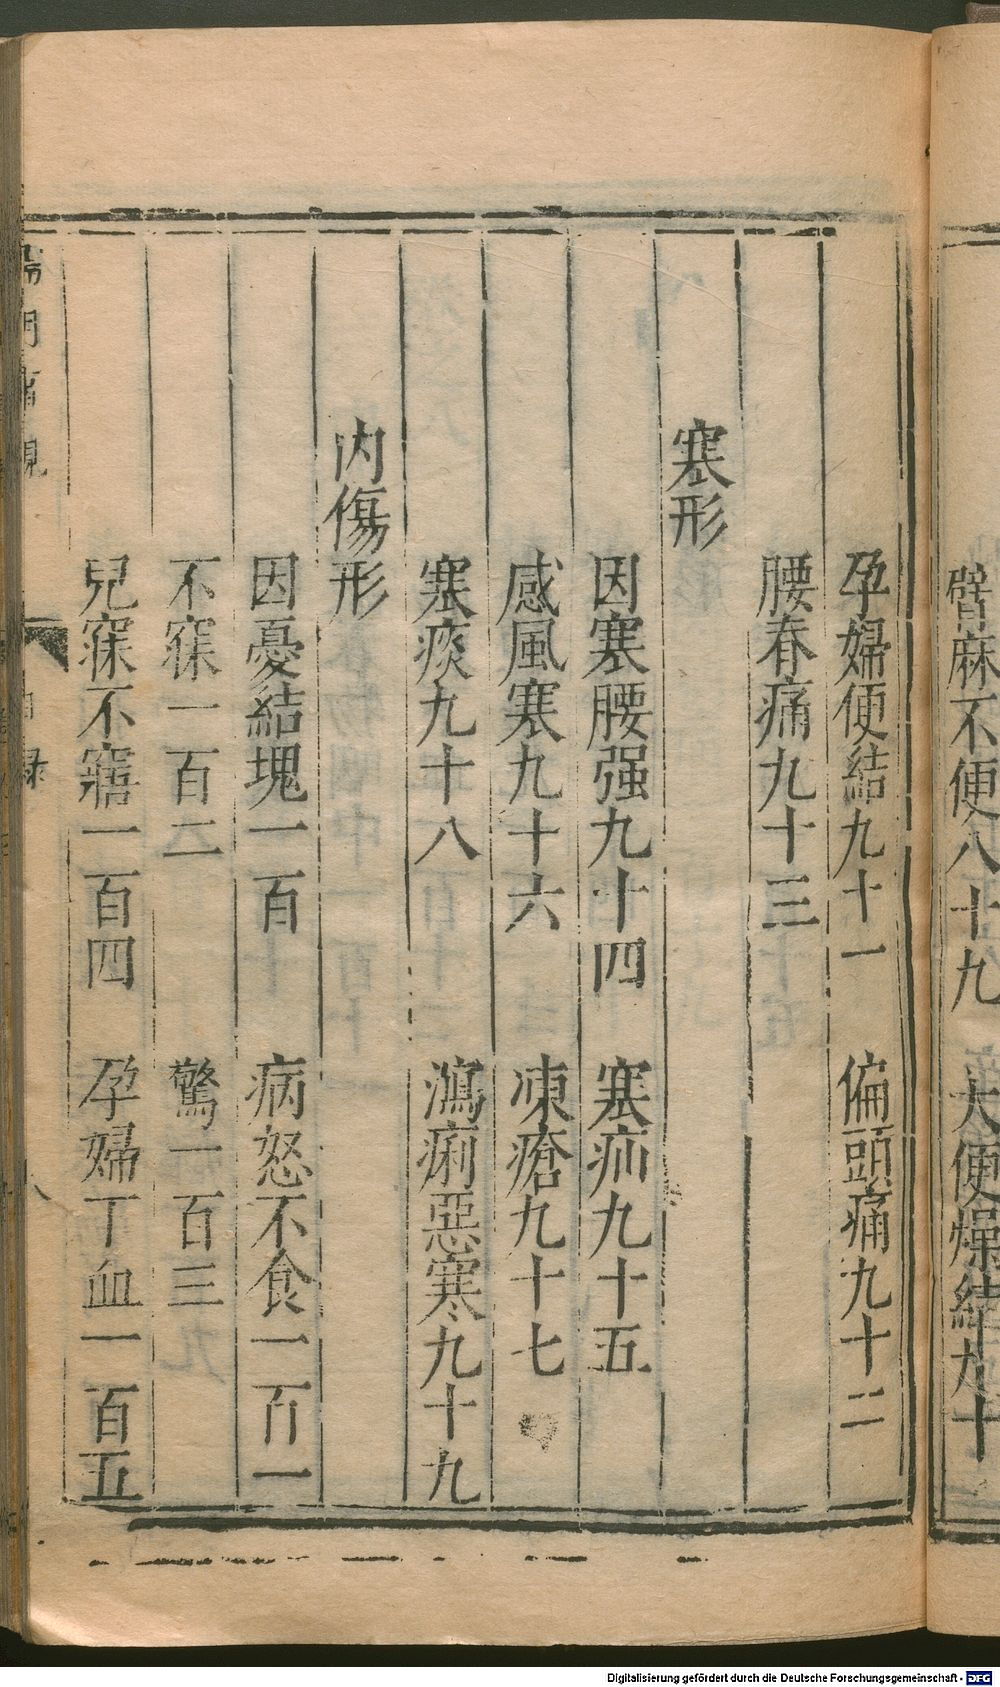 臂麻不便八十九　大便燥結九十
孕婦便結九十一　偏頭痛九十二
腰脊痛九十三
寒形
因寒腰强九十四　寒疝九十五
感風寒九十六　凍瘡九十七
寒痰九十八　瀉痢惡寒九十九
内傷形
因憂結塊一百　病怒不食一百一
不寐一百二　驚一百三
兒寐不寤一百四　孕婦下血一百五
儒門事親　目録　八
Digitalisierung gefördert durch die Deutsche Forschungsgemeinschaft - DFG